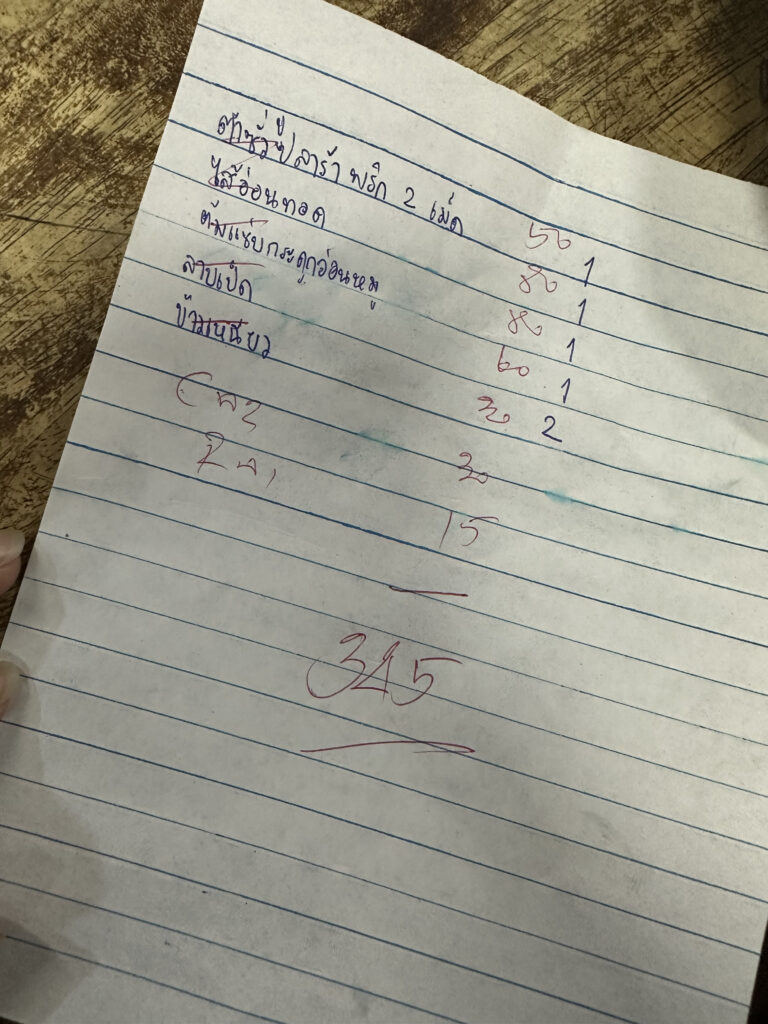 ตำซั่วปูปลาร้า พริก 2 เม็ด 50 1
ไส้อ่อนทอด 80 1
ต้มแซ่บกระดูกอ่อนหมู 80 1
ลาบเป็ด 60 1
ข้าวเหนียว 30 2
30
15
345